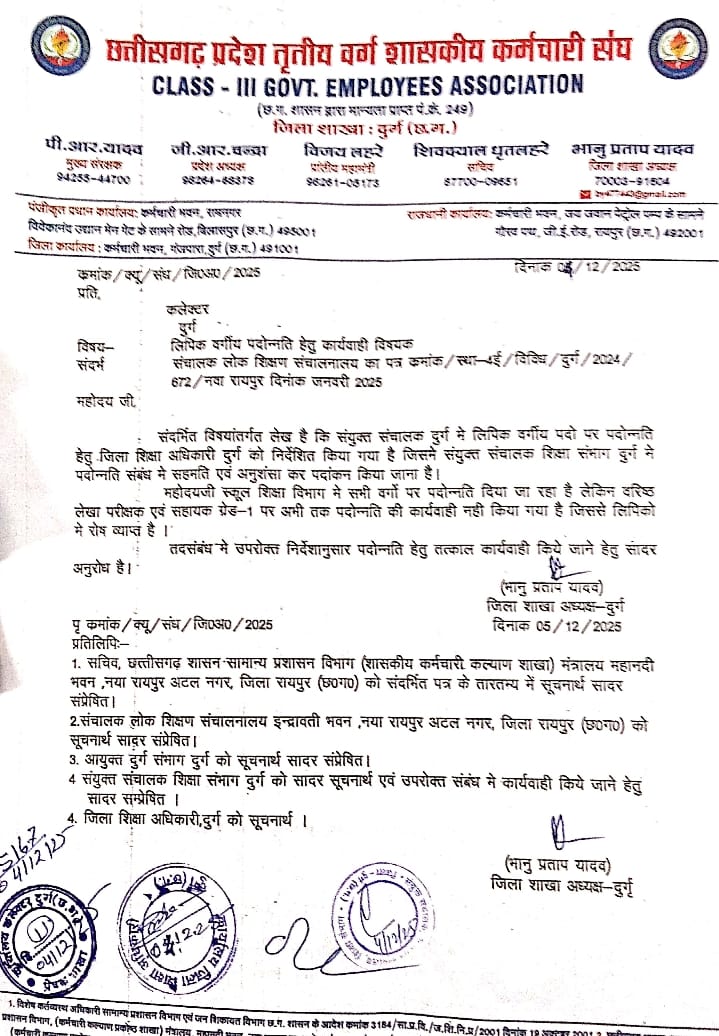 छत्तीसगढ़ प्रदेश तृतीय वर्ग शासकीय कर्मचारी संघ
CLASS - III GOVT. EMPLOYEES ASSOCIATION
(छ.ग. शासन द्वारा मान्यता प्राप्त पं.कं. 249)
जिला शाखा : दुर्ग (छ.ग.)
पी.आर.यादव जी.आर.चन्द्रा विजय लहरे शिवक्याल धृतलहरे भानु प्रताप यादव
मुख्य संरक्षक प्रदेश अध्यक्ष प्रांतीय महामंत्री सचिव जिला शाखा अध्यक्ष
94255-44700 98264-68378 87700-09651 70003-91504
पंजीकृत प्रधान कार्यालय: कर्मचारी भवन, राघनगर राजधानी कार्यालय: कर्मचारी भवन, जय जवान पेट्रोल पम्प के सामने
विवेकानंद उद्यान मेन गेट के सामने रोड,बिलासपुर (छ.ग.) 495001 गौरव पथ, जी.ई.रोड, रायपुर (छ.ग.) 492001
जिला कार्यालय : कर्मचारी भवन, गंजपारा,दुर्ग (छ.ग.) 491001
कमांक/क्यू/संघ/जि0अ0/2025 दिनांक 05/12/2025
प्रति,
कलेक्टर
दुर्ग
विषय– लिपिक वर्गीय पदोन्नति हेतु कार्यवाही विषयक
संदर्भ संचालक लोक शिक्षण संचालनालय का पत्र कमांक/स्था–4ई/विविध/दुर्ग/2024/
672/नवा रायपुर दिनांक जनवरी 2025
महोदय जी,
संदर्भित विषयांतर्गत लेख है कि संयुक्त संचालक दुर्ग मे लिपिक वर्गीय पदो पर पदोन्नति
हेतु जिला शिक्षा अधिकारी दुर्ग को निर्देशित किया गया है जिसमे संयुक्त संचालक शिक्षा संभाग दुर्ग मे
पदोन्नति संबंध मे सहमति एवं अनुशंसा कर पदांकन किया जाना है।
महोदयजी स्कूल शिक्षा विभाग मे सभी वर्गो पर पदोन्नति दिया जा रहा है लेकिन वरिष्ठ
लेखा परीक्षक एवं सहायक ग्रेड–1 पर अभी तक पदोन्नति की कार्यवाही नही किया गया है जिससे लिपिको
मे रोष व्याप्त है ।
तदसंबंध मे उपरोक्त निर्देशानुसार पदोन्नति हेतु तत्काल कार्यवाही किये जाने हेतु सादर
अनुरोध है।
(भानु प्रताप यादव)
जिला शाखा अध्यक्ष–दुर्ग
पृ कमांक/क्यू/संघ/जि0अ0/2025 दिनांक 05/12/2025
प्रतिलिपिः–
1. सचिव, छत्तीसगढ़ शासन सामान्य प्रशासन विभाग (शासकीय कर्मचारी कल्याण शाखा) मंत्रालय महानदी
भवन ,नया रायपुर अटल नगर, जिला रायपुर (छ0ग0) को संदर्भित पत्र के तारतम्य में सूचनार्थ सादर
संप्रेषित।
2.संचालक लोक शिक्षण संचालनालय इन्द्रावती भवन ,नया रायपुर अटल नगर, जिला रायपुर (छ0ग0) को
सूचनार्थ सादर संप्रेषित।
3. आयुक्त दुर्ग संभाग दुर्ग को सूचनार्थ सादर संप्रेषित।
4 संयुक्त संचालक शिक्षा संभाग दुर्ग को सादर सूचनार्थ एवं उपरोक्त संबंध मे कार्यवाही किये जाने हेतु
सादर सम्प्रेषित ।
4. जिला शिक्षा अधिकारी,दुर्ग को सूचनार्थ ।
(भानु प्रताप यादव)
जिला शाखा अध्यक्ष–दुर्ग
5167
4/12/25
04/12
1. विशेष कर्तव्यस्थ अधिकारी सामान्य प्रशासन विभाग एवं जन शिकायत विभाग छ.ग. शासन के आदेश कमांक 3184/सा.प्र.वि./ज.शि.नि.प्र/2001 दिनांक 19 अक्टूबर 2001